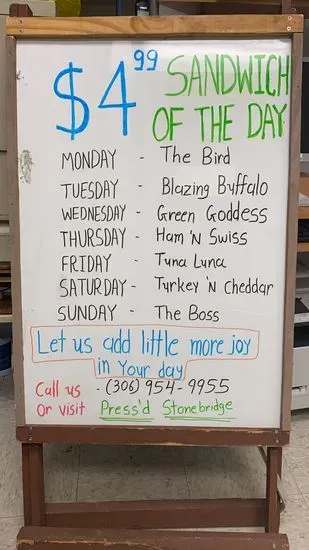 $4.99 SANDWICH
OF THE DAY
MONDAY - The Bird
TUESDAY - Blazing Buffalo
WEDNESDAY - Green Goddess
THURSDAY - Ham 'N Swiss
FRIDAY - Tuna Luna
SATURDAY - Turkey 'N Cheddar
SUNDAY - The Boss
Let us add little more joy
in Your day
Call us - (306) 954-9955
Or visit Press'd Stonebridge